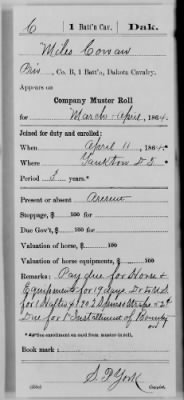 C 1 Batt'n Cav. Dak.
Miles Cowan
Pvt., Co. B, 1 Batt'n, Dakota Cavalry.
Appears on
Company Muster Roll
for March & April, 1864.
Joined for duty and enrolled:
When April 11, 1864.
Where Yankton D.T.
Period 3 years.*
Present or absent Present
Stoppage, $ 100 for
Due Gov't, $ 100 for
Valuation of horse, $ 100
Valuation of horse equipments, $ 100
Remarks: Pay due for Horse &
Equipments for 19 days. Dr to U.S.
for 1 Halter & Straps
Due for 1st Installment of Bounty
*As the enrollment on card from muster-in roll.
Book mark:
S. P. York
(358) Copyist.